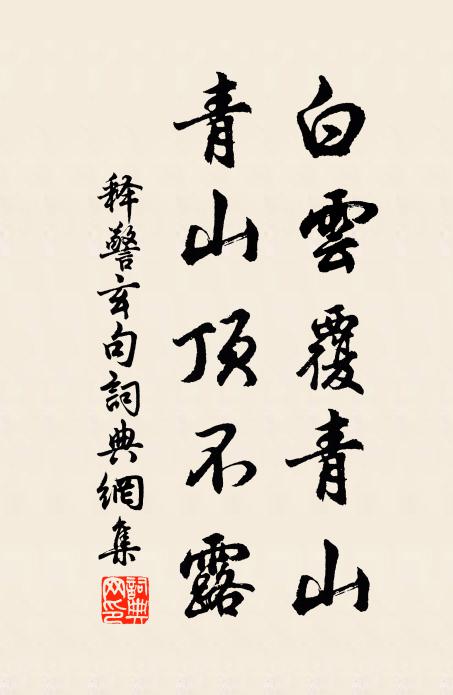 白雲覆青山
青山頂不露
释警玄句詞典網集
詞典網印